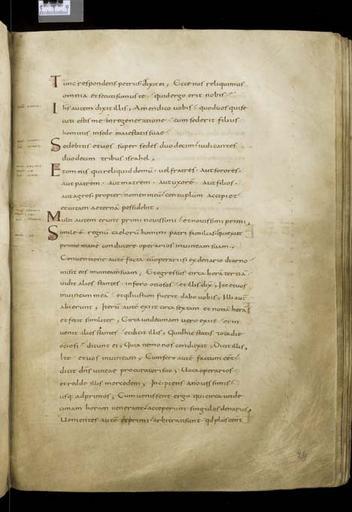 Tunc respondens petrus dixit ei, Ecce nos reliquimus
omnia et secuti sumus te quid ergo erit nobis
Ihs autem dixit illis, Amen dico uobis quod uos qui se
cuti estis me in regeneratione cum sederit filius
hominis in sede maiestatis suae
Sedebitis et uos super sedes duodecim iudicantes
duodecim tribus israhel,
Et omnis qui reliquid domum uel fratres aut sorores
aut patrem aut matrem aut uxorē aut filios
aut agros propter nomen meū centuplum accipiet
et uitam aeternā possidebit,
Multi autem erunt primi nouissimi et nouissimi primi,
Simile ē regnū caelorū homini patri familias qui exiit
primo mane conducere operarios in uineam suam,
Conuentione autē facta cū operariis ex denario diurno
misit eos in uineam suam, Et egressus circa horā tertiā
uidit alios stantes in foro otiosos et illis dix, Ite et uos
in uineam meā et quod iustum fuerit dabo uobis, Illi autē
abierunt, Iterū autē exiit circa sextam et nonā horā
et fecit similiter, Circa undecimam uero exiit et in
uenit alios stantes et dicit illis, Quid hic statis tota die
otiosi dicunt ei, Quia nemo nos conduxit, Dicit illis,
Ite et uos in uineam, Cum sero autē factum esset
dicit dns uineae procuratori suo, Uoca operarios
et redde illis mercedem, Incipiens a nouissimis
usq, ad primos, Cum uenissent ergo qui circa unde
cimam horam uenerant acceperunt singulos denarios,
Uenientes autē et primi arbitrati sunt qd plus essent